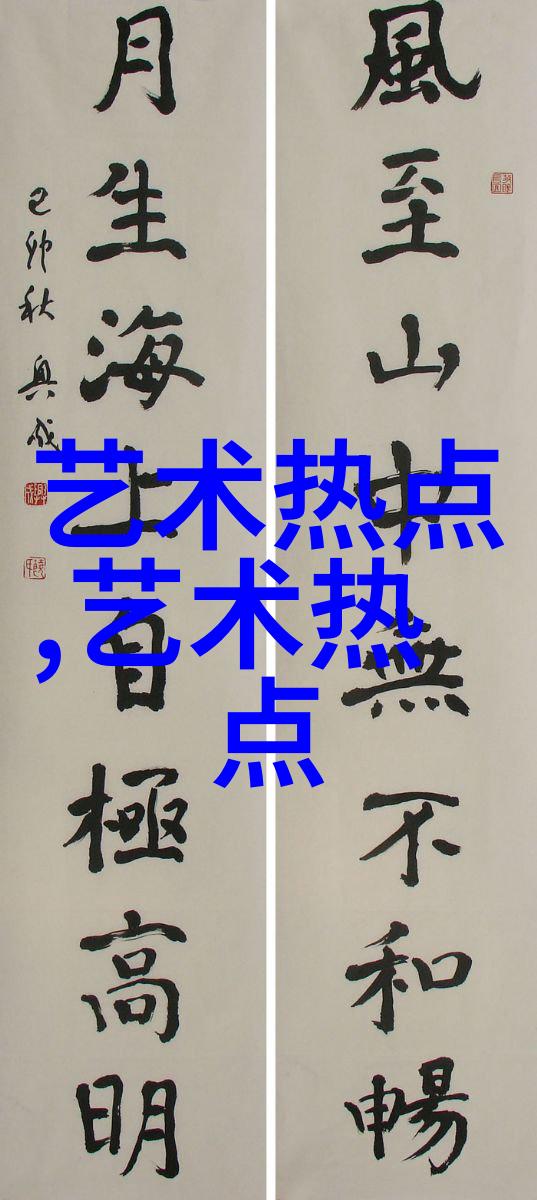 風至山中無不和暢
月生海上自極高明
己卯秋
艺术热点
,艺术热
点